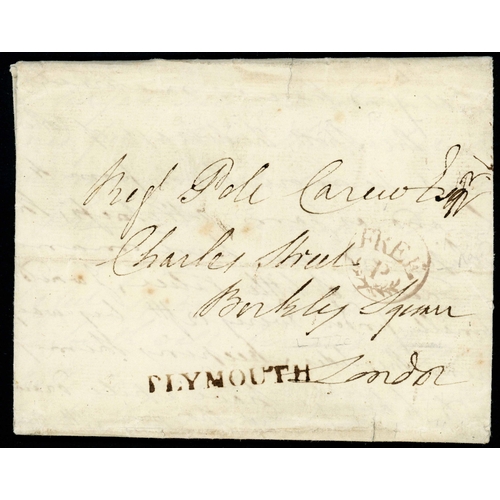 Regd Pole Carew Esqr
Charles Street
FREE
P
Berkley Square
PLYMOUTH London